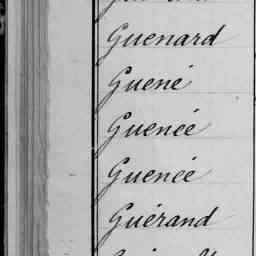 Guenard
Guené
Guenée
Guenée
Guérand